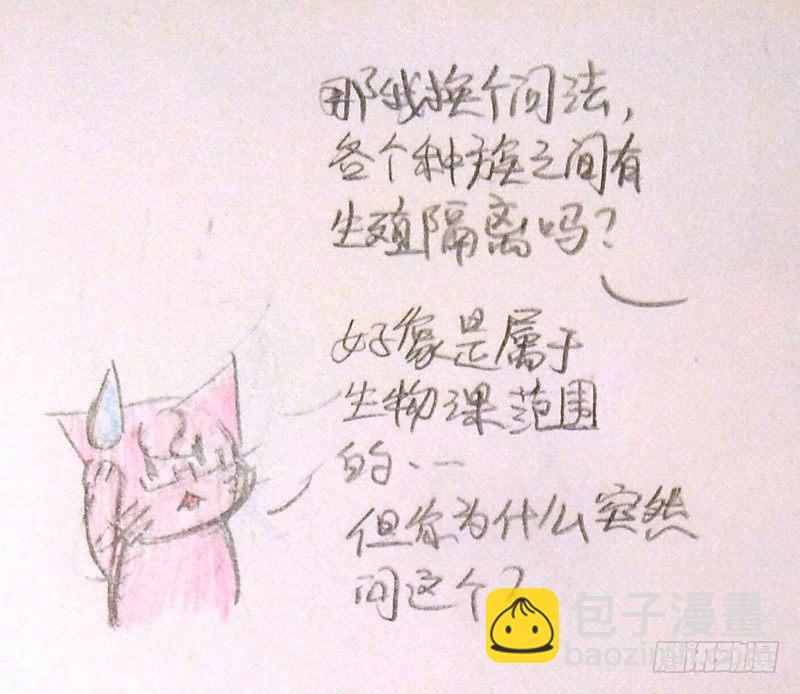 那我换个问法，
各个种族之间有
生殖隔离吗？
好像是属于
生物课范围
的．．一
但你为什么突然
问这个？
包子漫畫
baozim
腾讯动漫